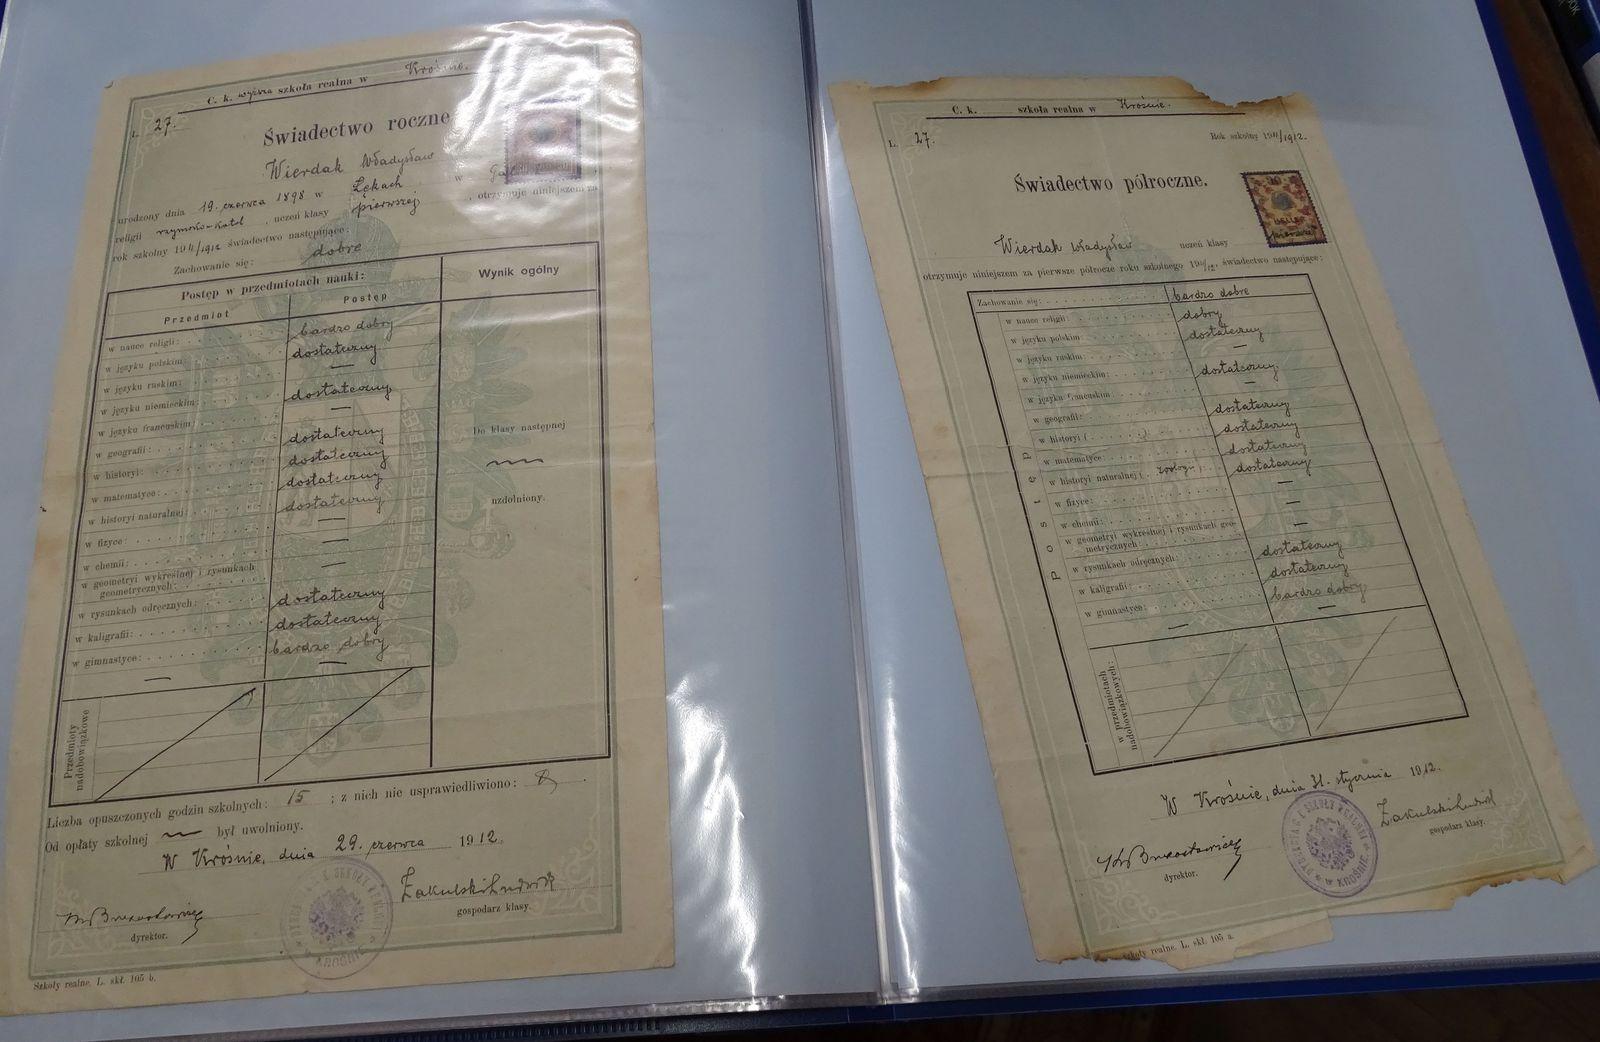 C. k. wyższa szkoła realna w Krośnie.
L. 27.
Świadectwo roczne
Wierdak Władysław
urodzony dnia 19. czerwca 1898 w Łękach w
religii rzymsko-katol. , uczeń klasy pierwszej , otrzymuje niniejszem za
rok szkolny 1911/1912 świadectwo następujące:
Zachowanie się: dobre
Postęp w przedmiotach nauki: Wynik ogólny
Przedmiot Postęp
w nauce religii: bardzo dobry
w języku polskim: dostateczny
w języku ruskim: —
w języku niemieckim: dostateczny
w języku francuskim —
w geografii: dostateczny
w historyi: dostateczny
w matematyce: dostateczny
w historyi naturalnej: dostateczny
w fizyce: —
w chemii: —
w geometryi wykreślnej i rysunkach
geometrycznych: —
w rysunkach odręcznych: dostateczny
w kaligrafii: dostateczny
w gimnastyce: bardzo dobry
— —
Do klasy następnej
uzdolniony.
Przedmioty
nadobowiązkowe
Liczba opuszczonych godzin szkolnych: 15 ; z nich nie usprawiedliwiono:
Od opłaty szkolnej był uwolniony.
W Krośnie, dnia 29. czerwca 1912.
Zakulski Ludwik
gospodarz klasy.
dyrektor.
KROŚNIE
Szkoły realne. L. skł. 105 b.
C. k. szkoła realna w Krośnie.
L. 27.
Rok szkolny 1911/1912.
Świadectwo półroczne.
Wierdak Władysław uczeń klasy
otrzymuje niniejszem za pierwsze półrocze roku szkolnego 1911/12. świadectwo następujące:
Zachowanie się: bardzo dobre
Postęp
w nauce religii: dobry
w języku polskim: dostateczny
w języku ruskim: —
w języku niemieckim: dostateczny
w języku francuskim —
w geografii: dostateczny
w historyi ( dostateczny
w matematyce: dostateczny
w historyi naturalnej ( zoologii ) dostateczny
w fizyce: —
w chemii: —
w geometryi wykreślnej i rysunkach geo-
metrycznych: —
w rysunkach odręcznych: dostateczny
w kaligrafii: dostateczny
w gimnastyce: bardzo dobry
— —
w przedmiotach
nadobowiązkowych:
W Krośnie, dnia 31. stycznia 1912.
Zakulski Ludwik
gospodarz klasy.
dyrektor.
W KROŚNIE
Szkoły realne. L. skł. 105 a.